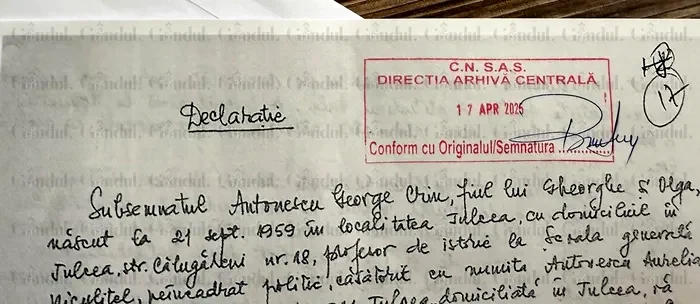 C.N. S.A.S.
DIRECTIA ARHIVĂ CENTRALĂ
17 APR 2025
Conform cu Originalul/Semnatura
17
Declarație
Subsemnatul Antonescu George Crin, fiul lui Gheorghe și Olga,
născut la 21 sept. 1959 în localitatea Tulcea, cu domiciliul în
Tulcea, str. Călugăreni nr. 18, profesor de istorie la Școala generală
Niculițel, neîncadrat politic, căsătorit cu numita Antonescu Aurelia
Tulcea, domiciliată în Tulcea,